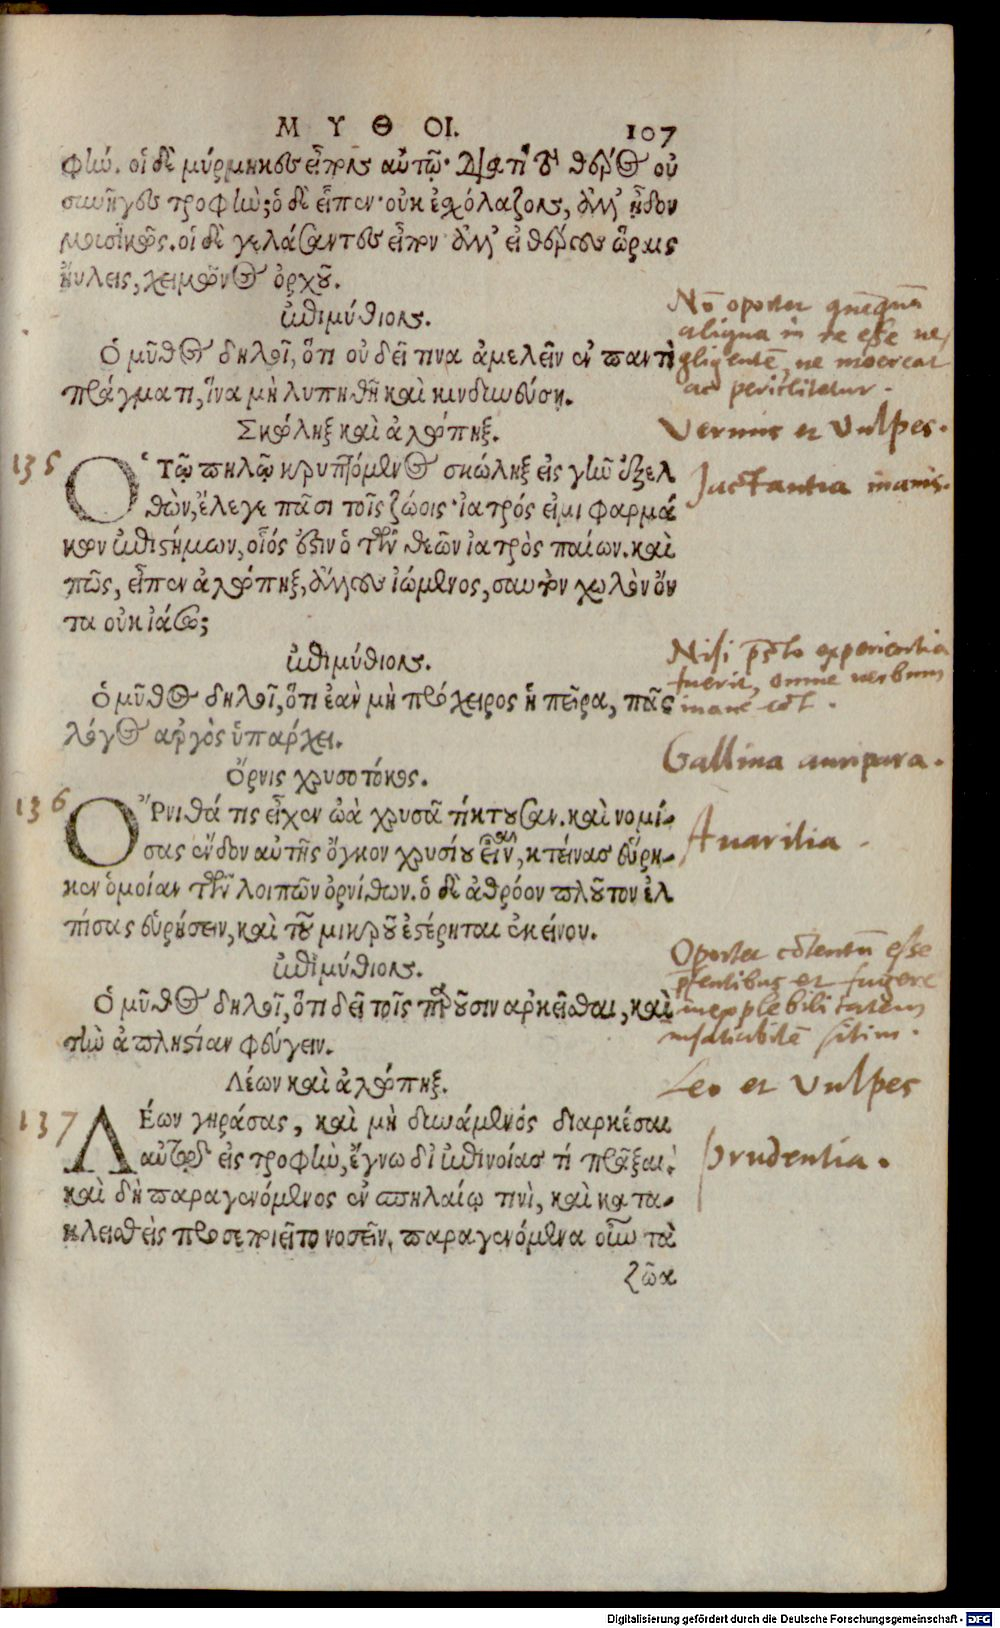 ΜΥΘΟΙ. 107
φήν. οἱ δὲ μύρμηκες εἶπον αὐτῷ· διατί τὸ θέρος οὐ
συνῆγες τροφήν; ὁ δὲ εἶπεν· οὐκ ἐσχόλαζον, ἀλλ' ᾖδον
μουσικῶς. οἱ δὲ γελάσαντες εἶπον· ἀλλ' εἰ θέρους ὥραις
ηὔλεις, χειμῶνος ὀρχοῦ.
ἐπιμύθιον.
Ὁ μῦθος δηλοῖ, ὅτι οὐ δεῖ τινα ἀμελεῖν ἐν παντὶ
πράγματι, ἵνα μὴ λυπηθῇ καὶ κινδυνεύσῃ.
Non oportet quenquam
aliqua in re esse ne,
gligentem, ne moereat
ac periclitetur.
Σκώληξ καὶ ἀλώπηξ.
Vermis et Vulpes.
135
Ὁ Τῷ πηλῷ κρυπτόμενος σκώληξ εἰς γῆν ἐξελ
θὼν, ἔλεγε πᾶσι τοῖς ζώοις· ἰατρός εἰμι φαρμά
κων ἐπιστήμων, οἷός ἐστιν ὁ τῶν θεῶν ἰατρὸς παίων. καὶ
πῶς, εἶπεν ἀλώπηξ, ἄλλους ἰώμενος, σαυτὸν χωλὸν ὄν
τα οὐκ ἰάσω;
Jactantia inanis.
ἐπιμύθιον.
Ὁ μῦθος δηλοῖ, ὅτι ἐὰν μὴ πρόχειρος ἡ πεῖρα, πᾶς
λόγος ἀργὸς ὑπάρχει.
Nisi praesto experientia
fuerit, omne verbum
inane est.
Ὄρνις χρυσοτόκος.
Gallina auripara.
136
Ὄρνιθά τις εἶχεν ὠὰ χρυσᾶ τίκτουσαν. καὶ νομί-
σας ἔνδον αὐτῆς ὄγκον χρυσίου εἶναι, κτείνας εὕρη-
κεν ὁμοίαν τῶν λοιπῶν ὀρνίθων. ὁ δὲ ἀθρόον πλοῦτον ἐλ
πίσας εὑρήσειν, καὶ τοῦ μικροῦ ἐστέρηται ἐκείνου.
Avaritia.
ἐπιμύθιον.
Ὁ μῦθος δηλοῖ, ὅτι δεῖ τοῖς παροῦσιν ἀρκεῖσθαι, καὶ
τὴν ἀπληστίαν φεύγειν.
Oportet contentum esse
praesentibus et fugere
inexplebilitatem
insatiabilem sitim.
Λέων καὶ ἀλώπηξ.
Leo et Vulpes
137
Λέων γηράσας, καὶ μὴ δυνάμενός διαρκέσαι
αὐτῷ εἰς τροφήν, ἔγνω δι' ἐπινοίας τί πρᾶξαι.
καὶ δὴ παραγενόμενος ἐν σπηλαίῳ τινὶ, καὶ κατα-
κλεισθεὶς προσεποιεῖτο νοσεῖν. παραγενόμενα οὖν τὰ
ζῶα
Prudentia.
Digitalisierung gefördert durch die Deutsche Forschungsgemeinschaft - DFG